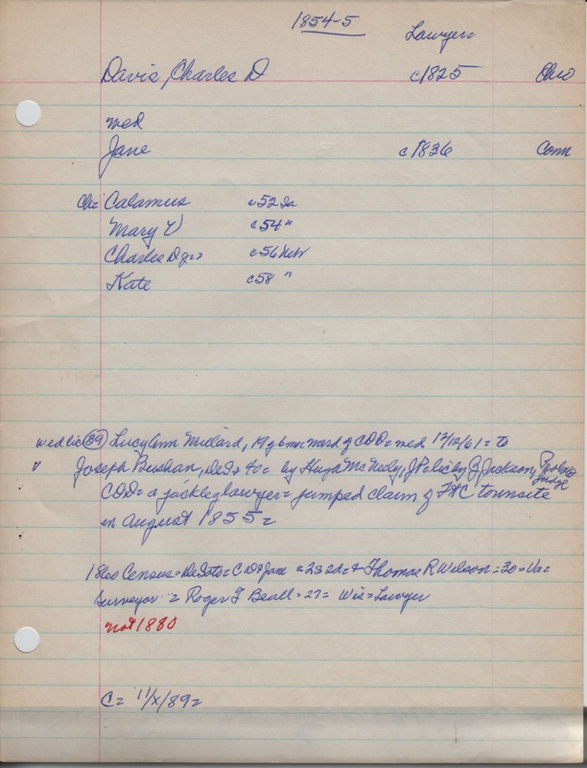 1854-5
Lawyer=
Davis, Charles D c1825 Ohio
wed
Jane c1836 Conn
Ch= Calamus c52 Ia
Mary V c54 "
Charles D jr= c56 Neb
Kate c58 "
wed lic (89) Lucy Ann Millard, 19y 6m= ward of CDD= wed 12/12/61= to
v Joseph Bushan, DeSo 40= by Hugh McNeely, JP lic by Jackson, Probate Judge
CDD= a jackleg lawyer= jumped claim of FtC townsite
in August 1855=
1860 Census= DeSoto= CD & Jane & Thomas R Wilson= 30= Va=
Surveyor = Roger T Beall= 27= Wis= Lawyer
not 1880
C= 11/X/89=